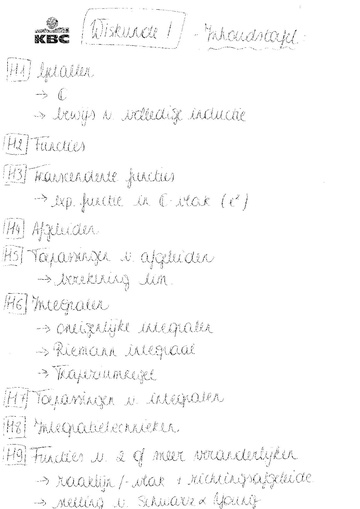 KBC
Wiskunde 1 - Inhoudstafel
H1 Getallen
→ ℂ
→ bewijs v. volledige inductie
H2 Functies
H3 Transcendente functies
→ exp. functie in ℂ-vlak (eᶻ)
H4 Afgeleiden
H5 Toepassingen v. afgeleiden
→ berekening lim.
H6 Integralen
→ oneigenlijke integralen
→ Riemann integraal
→ Trapeziumregel
H7 Toepassingen v. integralen
H8 Integratietechnieken
H9 Functies v. 2 of meer veranderlijken
→ raaklijn/-vlak + richtingsafgeleide
→ stelling v. Schwarz & Young